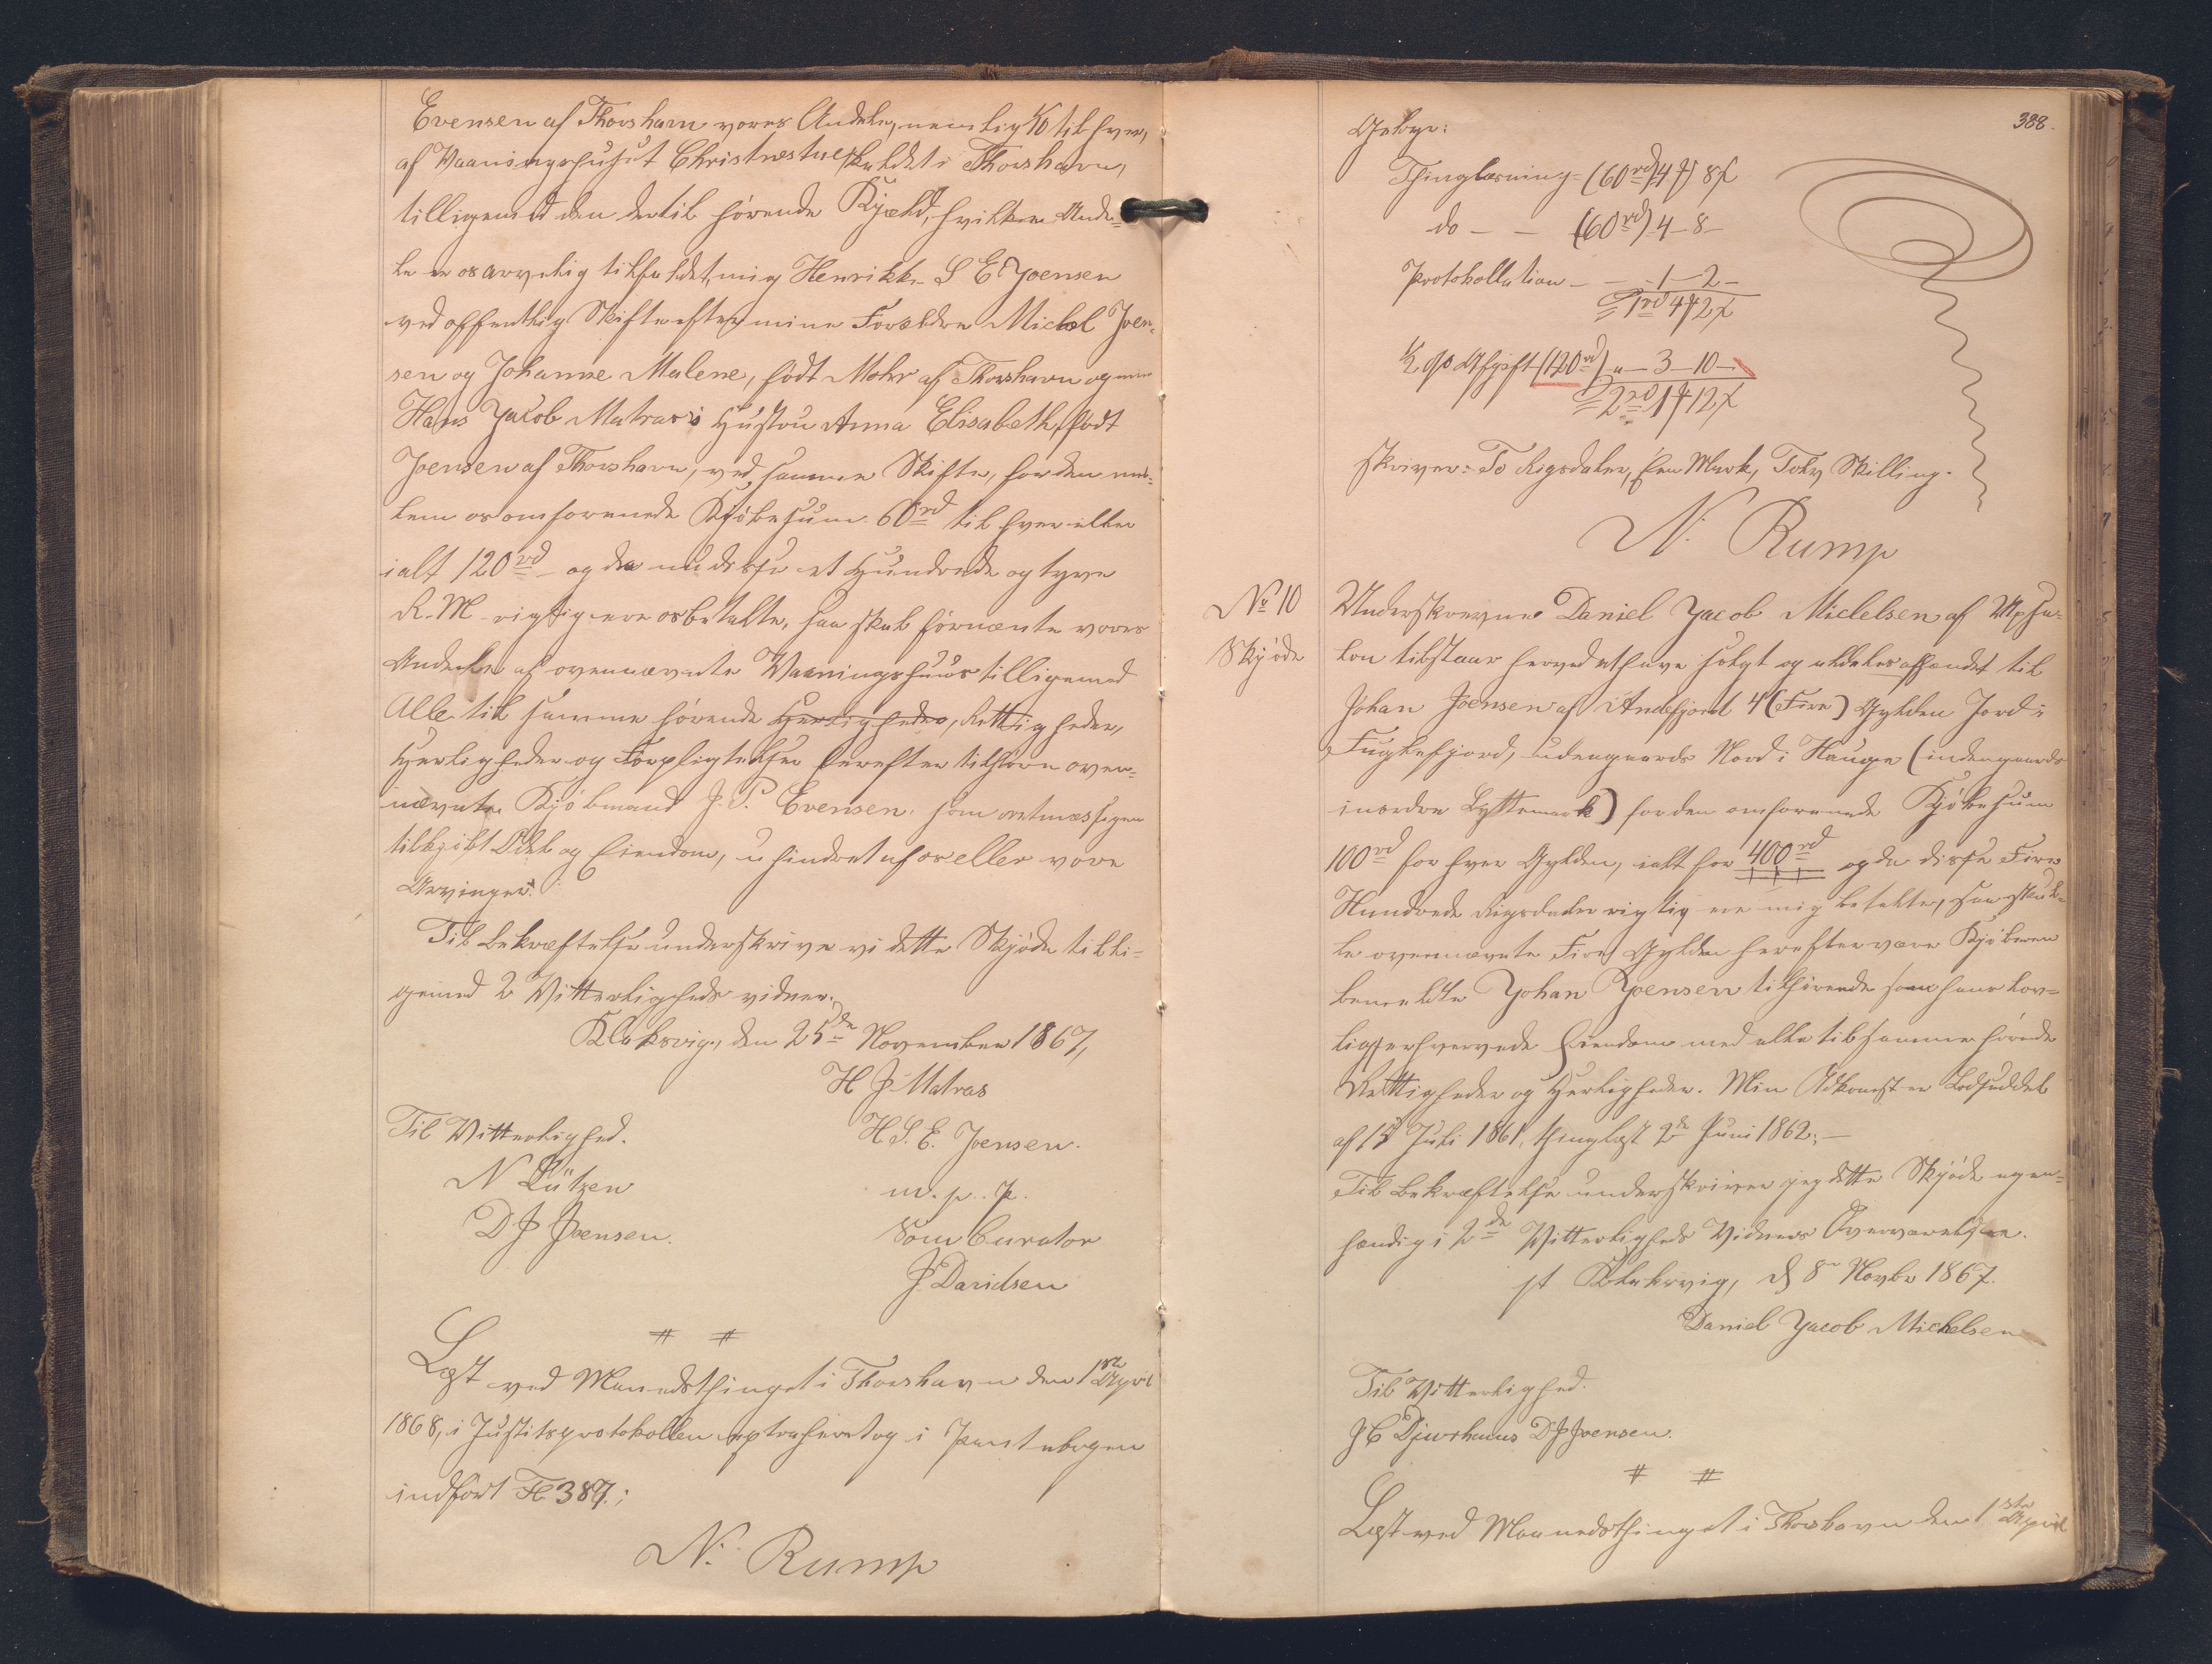 Evensen af Thorshavn vores Andele, nemlig 1/10 til hver,
af Vaaningshuset Christnestue kaldet i Thorshavn,
tilligemed den dertil hørende Kjæld, hvilken Ande=
le er os arvelig tilfaldet, mig Henrikke S E Joensen
ved offentlig Skifte efter mine Forældre Michel Joen-
sen og Johanne Malene, født Mohr af Thorshavn og min
Hans Jacob Matras's Hustru Anna Elisabeth, født
Joensen af Thorshavn, ved samme Skifte, for den mel=
lem os omforenede Kjøbesum 60rd til hver eller
ialt 120rd og da nu disse et Hundrede og tyve
R.M. rigtig ere os betalte, saa skal førnævnte vores
Andele af ovennævnte Vaaningshuus tilligemed
Alle til samme hørende Herligheder, Rettigheder,
Herligheder og Forpligtelser herefter tilhøre oven=
nævnte Kjøbmand J. P. Evensen, som retmæssigen
tilkjøbt Odel og Eiendom, uhindret af os eller vore
Arvinger.
Til Bekræftelse underskrive vi dette Skjøde tilli=
gemed 2 Vitterligheds vidner.
Klaksvig, den 25de November 1867,
H J Matras
Til Vitterlighed.
H. S. E. Joensen.
N Lützen
m. p. P.
D J Joensen.
Som Curator
J Davidsen
# #
Læst ved Maanedsthinget i Thorshavn den 1ste April
1868, i Justitsprotokollen extraheret og i Pantebogen
indført Fol 387.;
N. Rump
388.
Gebyr:
Thinglæsning = (60rd) 4 ₰ 8 ß
do - - (60rd) 4 - 8 -
Protokollation - - 1 - 2 -
= 1rd 4 ₰ 2 ß
½ pC Afgift (120rd) „ - 3 - 10 -
= 2rd 1 ₰ 12 ß
skriver: To Rigsdaler, Een Mark, Tolv Skilling.
N. Rump
No 10
Skjøde
Underskrevne Daniel Jacob Michelsen af
tilstaar herved at have solgt og aldeles afhændet til
Johan Joensen af Andefjord 4 (Fire) Gylden Jord i
Fuglefjord, udengaards Nord i Hauge (indengaards
i nordre Byttemark) for den omforenede Kjøbesum
100rd for hver Gylden, ialt for 400rd og da disse Fire
Hundrede Rigsdaler rigtig ere mig betalte, saa skal=
le ovennævnte Fire Gylden herefter være Kjøberen
bemeldte Johan Joensen tilhørende som hans lov=
ligerhvervede Eiendom med alle til samme hørende
Rettigheder og Herligheder. Min Adkomst er Lodseddel
af 15 Juli 1861, thinglæst 2de Juni 1862; -
Til Bekræftelse underskriver jeg dette Skjøde egen=
hændig i 2de Vitterligheds Vidners Overværelse.
pt Klaksvig, d 8de Novbr 1867.
Daniel Jacob Michelsen
Til Vitterlighed.
J C Djurhuus D J Joensen.
# #
Læst ved Maanedsthinget i Thorshavn den 1ste April